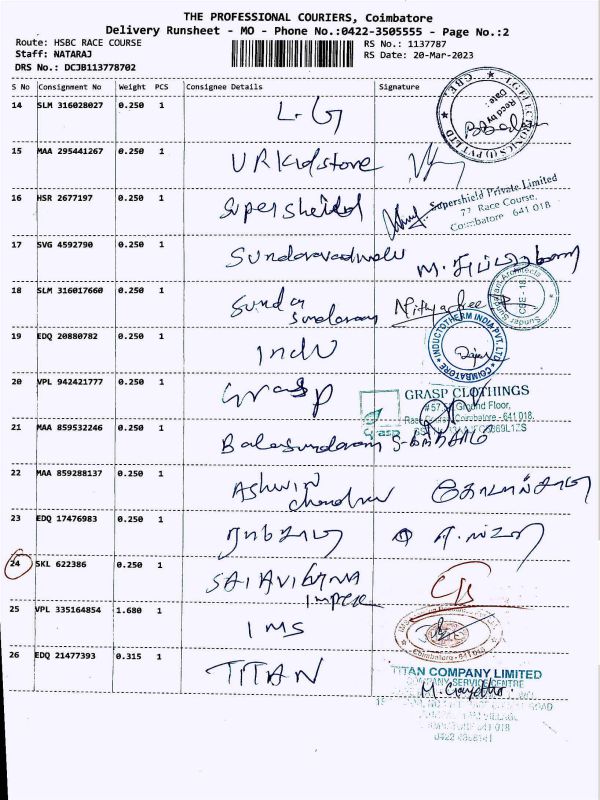 THE PROFESSIONAL COURIERS, Coimbatore
Delivery Runsheet - MO - Phone No.:0422-3505555 - Page No.:2
Route: HSBC RACE COURSE
RS No.: 1137787
Staff: NATARAJ
RS Date: 20-Mar-2023
DRS No.: DCJB113778702
S No Consignment No Weight PCS Consignee Details Signature
14 SLM 316028027 0.250 1 L.G
LG ELECTRONICS (I) PVT LTD
CBE
Recd by
Date:
15 MAA 295441267 0.250 1 UR Kidstore
16 HSR 2677197 0.250 1 Supersheild
Supershield Private Limited
77 Race Course,
Coimbatore 641 018
17 SVG 4592790 0.250 1 Sundaravadivelu
18 SLM 316017660 0.250 1 Sundar
Sundaram
Nithyashree
Sundar Sundaram Architects
CBE-18.
19 EDQ 20880782 0.250 1 Indu
INDUCTOTHERM INDIA PVT. LTD.
COIMBATORE
20 VPL 942421777 0.250 1 Grasp
GRASP CLOTHINGS
Ground Floor,
Coimbatore - 641 018.
Grasp
21 MAA 859532246 0.250 1 Balasundaram
22 MAA 859288137 0.250 1 Ashwin
Chandran
23 EDQ 17476983 0.250 1
24 SKL 622386 0.250 1 SAI AVIGHNA
Impex
25 VPL 335164854 1.680 1 IMS
Coimbatore - 641 018
26 EDQ 21477393 0.315 1 TITAN
TITAN COMPANY LIMITED
COMPANY SERVICE CENTRE
M. Gayathri.